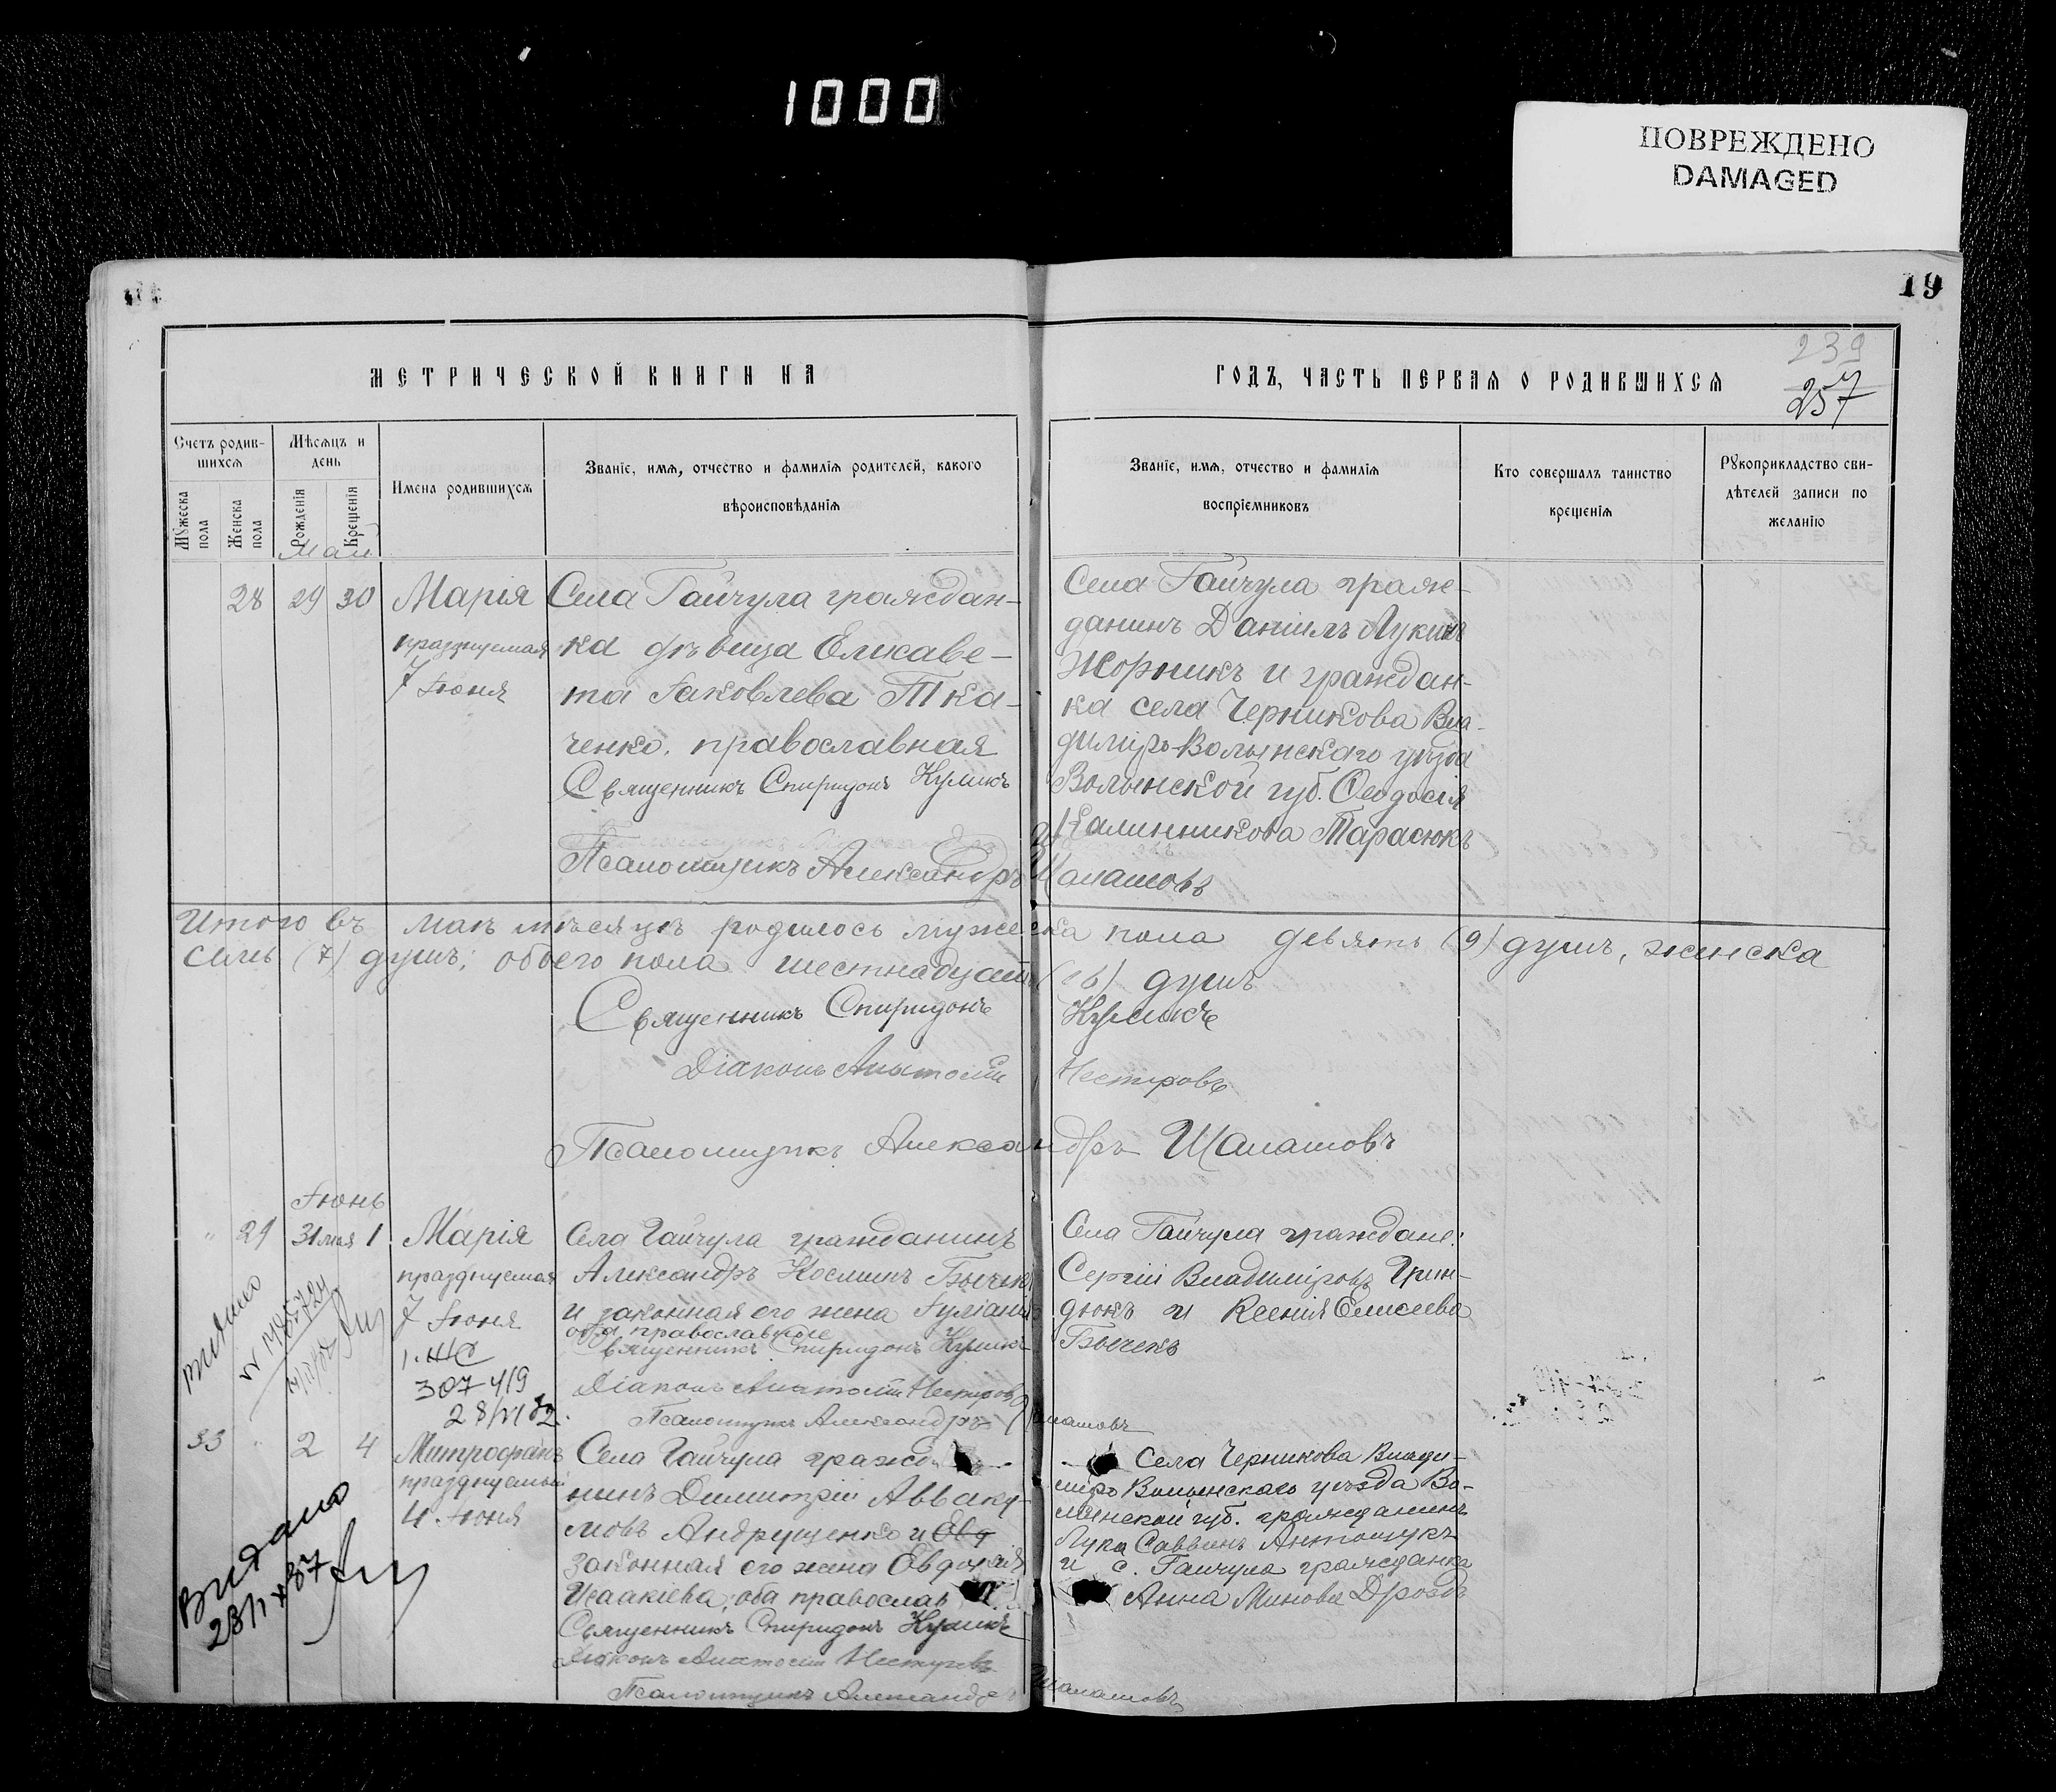 1000
ПОВРЕЖДЕНО
DAMAGED
19
239
257
МЕТРИЧЕСКОЙ КНИГИ НА
ГОДЪ, ЧАСТЬ ПЕРВАЯ О РОДИВШИХСЯ
Счетъ родив-
шихся
Мѣсяцъ и
день
Мужеска
пола
Женска
пола
Рожденія
Крещенія
Имена родившихся
Званіе, имя, отчество и фамилія родителей, какого
вѣроисповѣданія
Званіе, имя, отчество и фамилія
воспріемниковъ
Кто совершалъ таинство
крещенія
Рукоприкладство сви-
дѣтелей записи по
желанію
Май
28 29 30
Марія
празднуемая
7 Іюня
Села Гайчула граждан-
ка дѣвица Елисаве-
та Іаковлева Тка-
ченко, православная
Священникъ Спиридонъ Куликъ
Псаломщикъ Александръ Шалашовъ
Села Гайчула граж-
данинъ Даніилъ Лукинъ
Жорникъ и граждан-
ка села Черникова Вла-
диміръ-Волынскаго уѣзда
Волынской губ. Ѳеодосія
Калинникова Тарасюкъ
Итого въ маѣ мѣсяцѣ родилось мужеска пола девять (9) душъ, женска
семь (7) душъ; обоего пола шестнадцать (16) душъ
Священникъ Спиридонъ Куликъ
Діаконъ Анатолій Нестеровъ
Псаломщикъ Александръ Шалашовъ
Іюнь
29 31 мая 1
Марія
празднуемая
7 Іюня
307419
28/VI 82.
Села Гайчула гражданинъ
Александръ Косминъ Бычекъ
и законная его жена Іуліанія
оба православные
Священникъ Спиридонъ Куликъ
Діаконъ Анатолій Нестеровъ
Псаломщикъ Александръ Шалашовъ
Села Гайчула граждане:
Сергій Владиміровъ Грин-
дюкъ и Ксенія Елисеева
Бычекъ
33 2 4
Митрофанъ
празднуемый
4 Іюня
Видано
Села Гайчула гражд
нинъ Димитрій Авваку-
мовъ Андрущенко и Евд
законная его жена Евдокія
Исаакіева, оба православ
Священникъ Спиридонъ Куликъ
Діаконъ Анатолій Нестеровъ
Псаломщикъ Александръ Шалашовъ
Села Черникова Влади-
міръ Волынскаго уѣзда Во-
лынской губ. гражданинъ
Лука Саввинъ Антощукъ
и с. Гайчула гражданка
Анна Минова Дроздъ